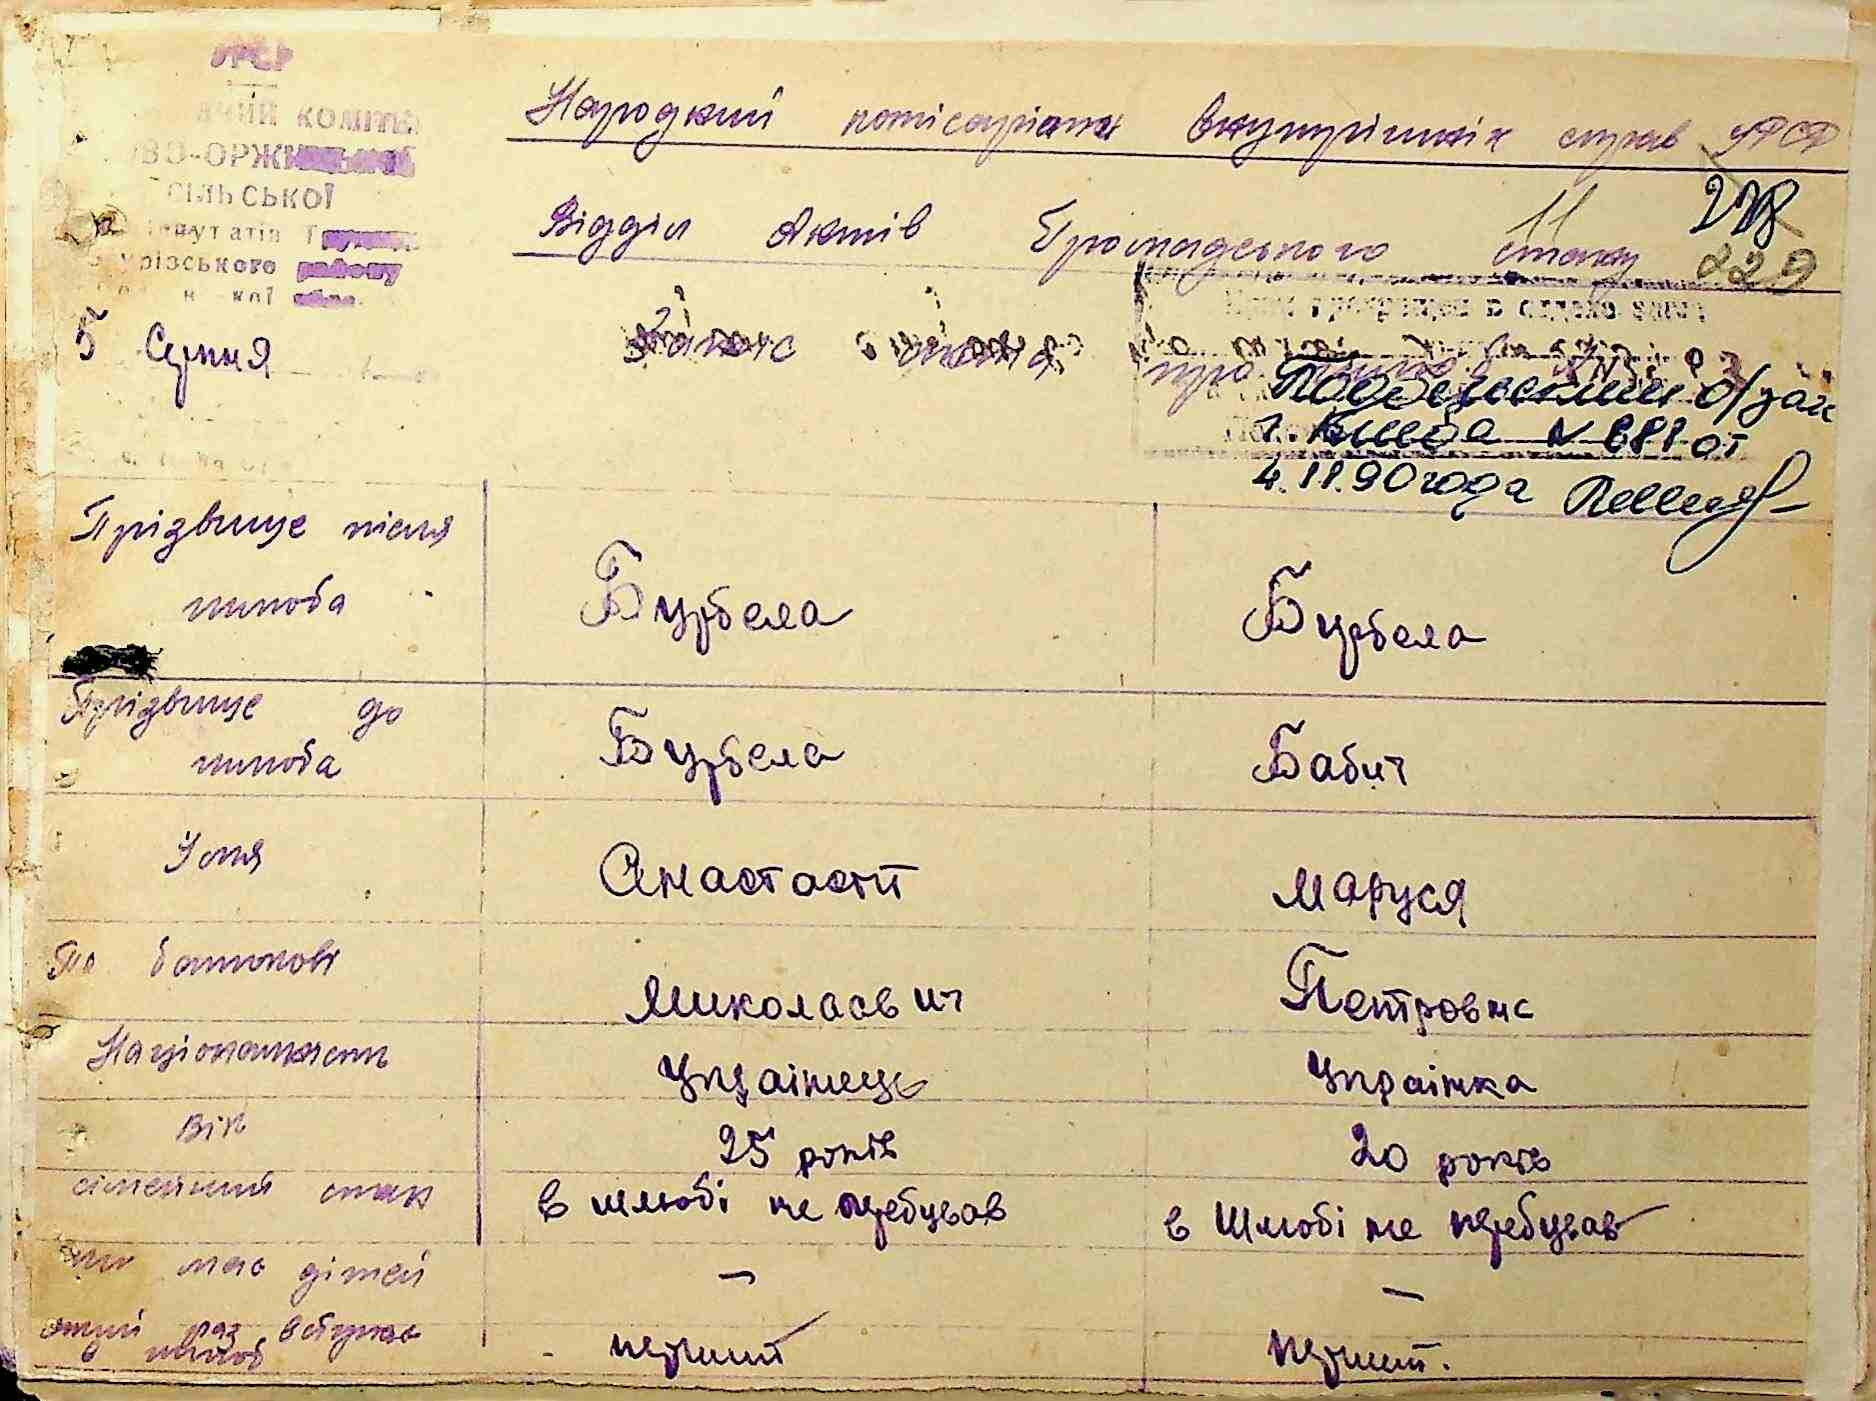 УРСР
КОМІТЕТ
ВО-ОРЖИЦЬКОЇ
СІЛЬСЬКОЇ
депутатів
району
5 Серпня
Народний комісаріат внутрішніх справ УРСР
Відділ Актів Громадського стану
229
про шлюб
г. Киева № 681 от
4.11.90 года
Прізвище після шлюба Бурбела Бурбела
Прізвище до шлюба Бурбела Бабич
 Імя Анастасій Маруся
По батькові Миколаєвич Петровнє
Національність Українець Українка
Вік 25 років 20 років
сімейний стан в шлюбі не перебував в шлюбі не перебував
має дітей — —
раз вступає шлюб перший перший.